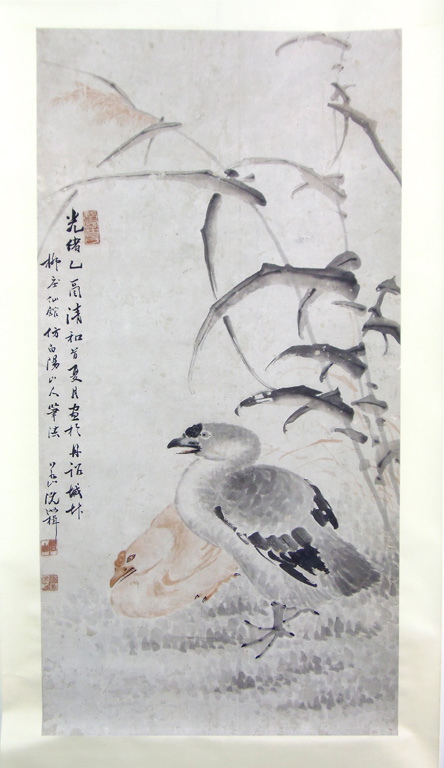 光緒乙酉清和首夏月畫於丹詔城北
柳㕓仙館仿白陽山人筆法